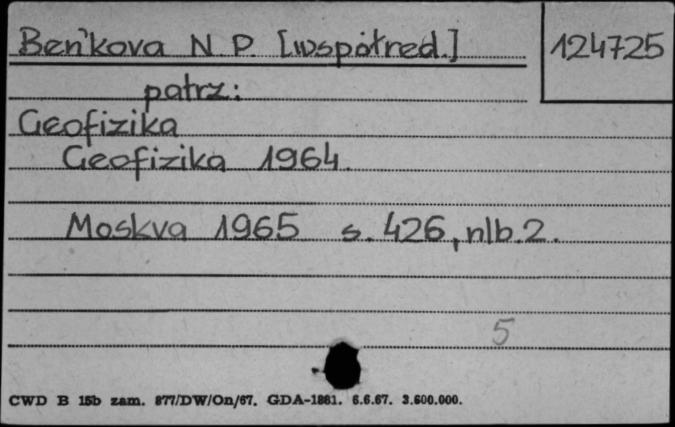 Ben'kova N. P. [współred.]
124725
patrz:
Geofizika
Geofizika 1964.
Moskva 1965 s. 426, nlb. 2.
5
CWD B 15b zam. 877/DW/On/67. GDA-1861. 6.6.67. 3.600.000.